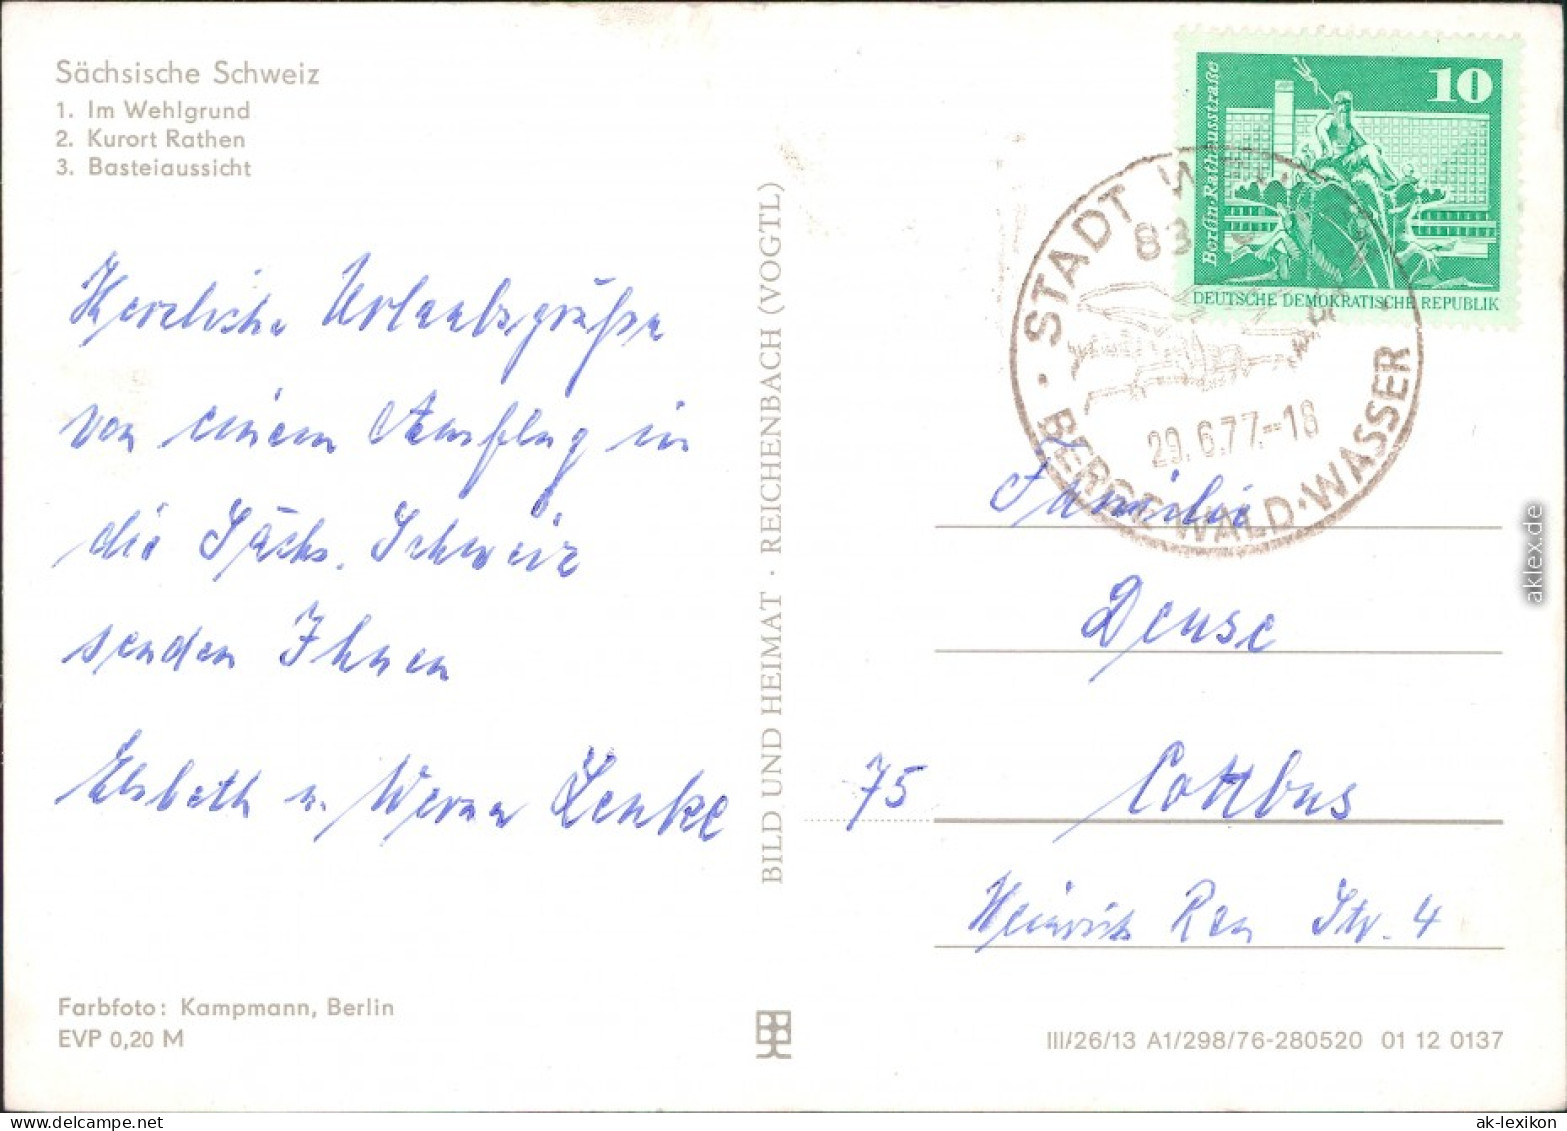 Sächsische Schweiz
1. Im Wehlgrund
2. Kurort Rathen
3. Basteiaussicht
Herzliche Urlaubsgrüße
von einem Ausflug in
die Sächs. Schweiz
senden Ihnen
Elsbeth u. Werner Lenke
Farbfoto: Kampmann, Berlin
EVP 0,20 M
BILD UND HEIMAT · REICHENBACH (VOGTL)
10
Berlin-Rathausstraße
DEUTSCHE DEMOKRATISCHE REPUBLIK
· STADT
83
29.6.77.-18
BERGE·WALD·WASSER
Familie
Deuse
75 Cottbus
Heinrich Rau Str. 4
III/26/13 A1/298/76-280520 01 12 0137
aklex.de
www.delcampe.net
ak-lexikon